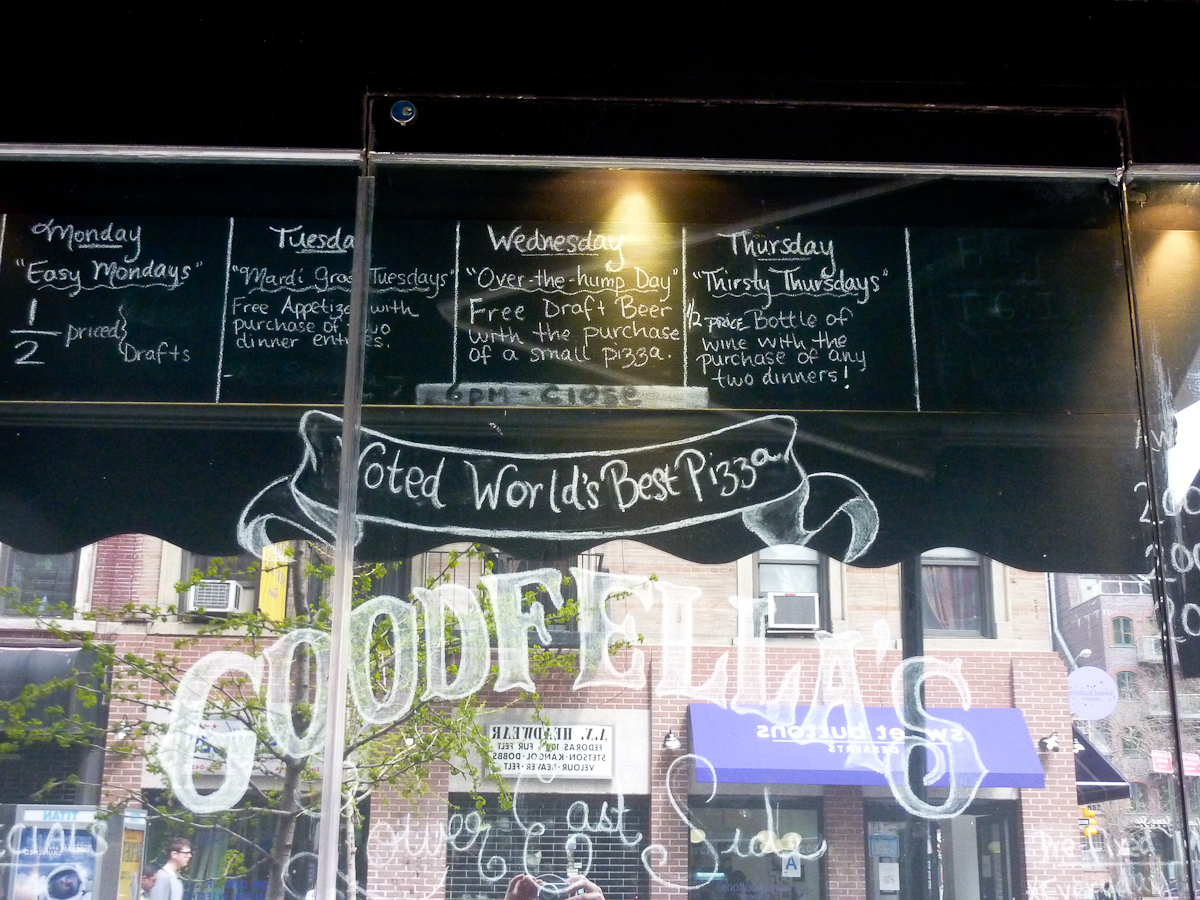 Monday
"Easy Mondays"
1/2 priced
Drafts
Tuesda
"Mardi Gras Tuesdays"
Free Appetize with
purchase of two
dinner entrees.
Wednesday
"Over-the-hump Day"
Free Draft Beer
with the purchase
of a small pizza.
6PM - Close
Thursday
"Thirsty Thursdays"
1/2 price Bottle of
wine with the
purchase of any
two dinners!
Voted World's Best Pizza
GOODFELLA'S
Lower East Side
HEADWEAR
FEDORAS 100% FUR FELT
STETSON·KANGOL·DOBBS
VELOUR·BEAVER·FELT
sweet buttons
DESSERTS
A
TITAN